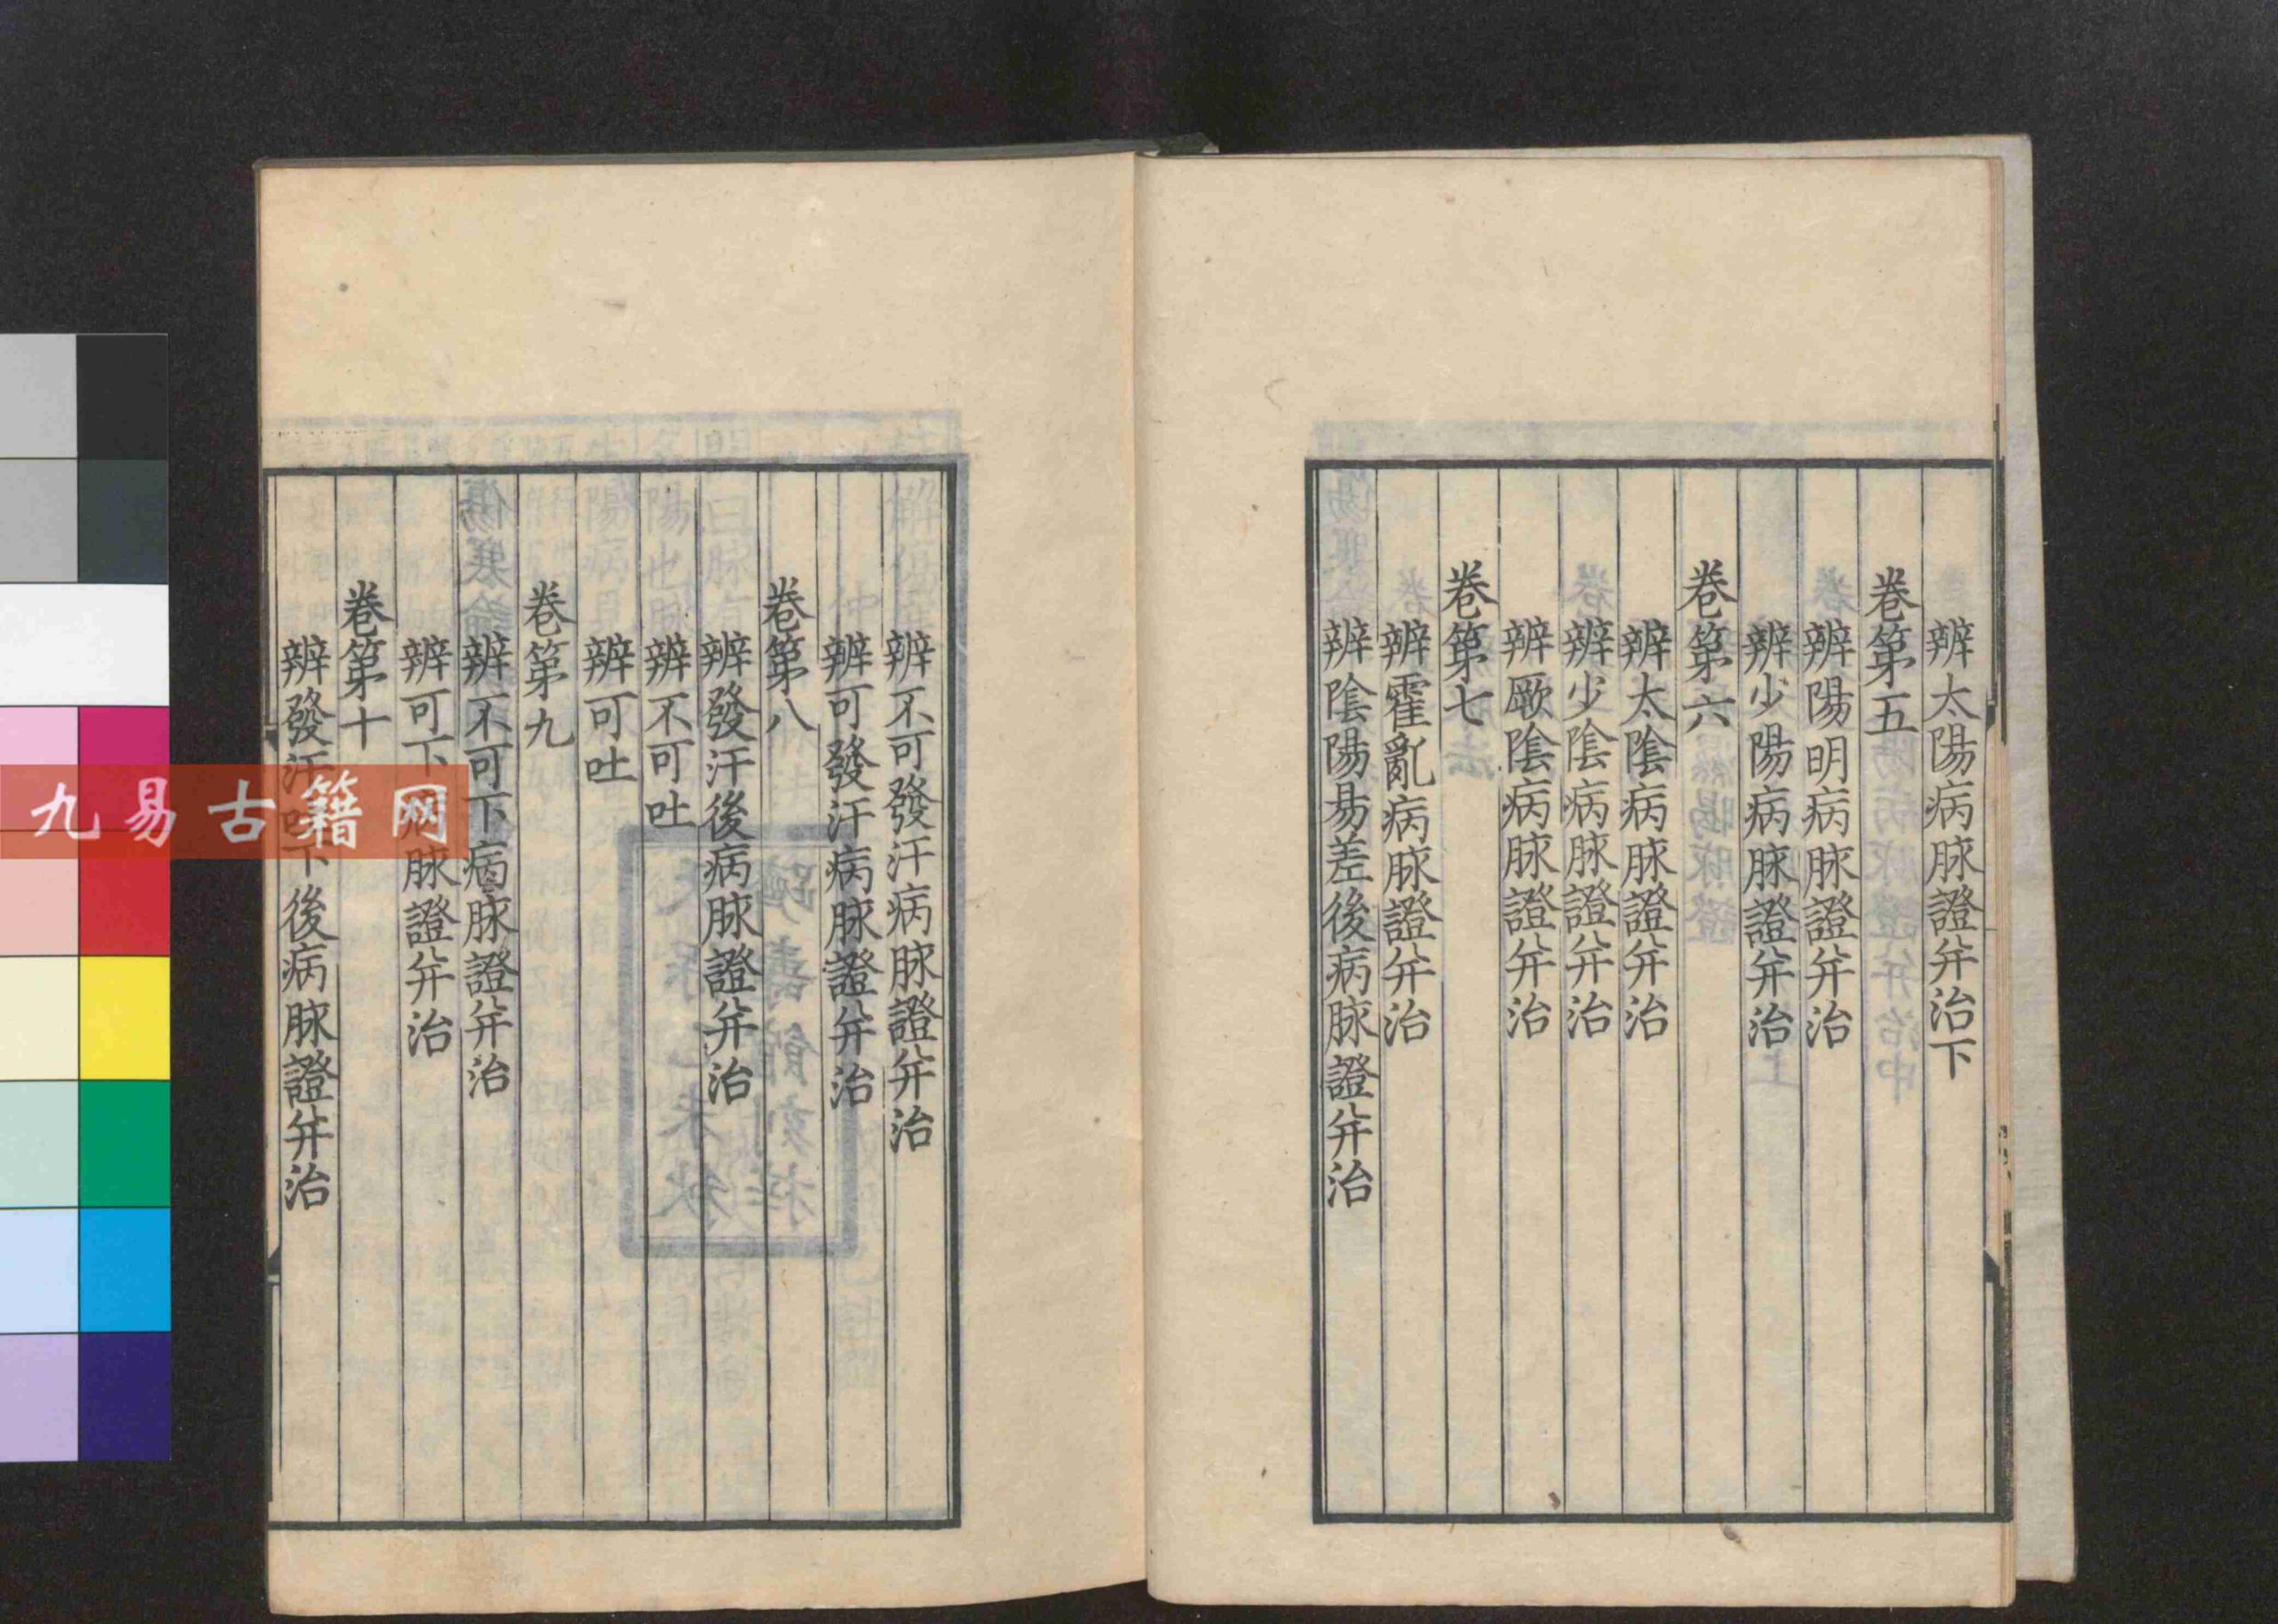 辨太陽病脉證并治下
卷第五
辨陽明病脉證并治
辨少陽病脉證并治
卷第六
辨太陰病脉證并治
辨少陰病脉證并治
辨厥陰病脉證并治
卷第七
辨霍亂病脉證并治
辨陰陽易差後病脉證并治
辨不可發汗病脉證并治
辨可發汗病脉證并治
卷第八
辨發汗後病脉證并治
辨不可吐
辨可吐
卷第九
辨不可下病脉證并治
辨可下病脉證并治
卷第十
辨發汗吐下後病脉證并治
九易古籍网